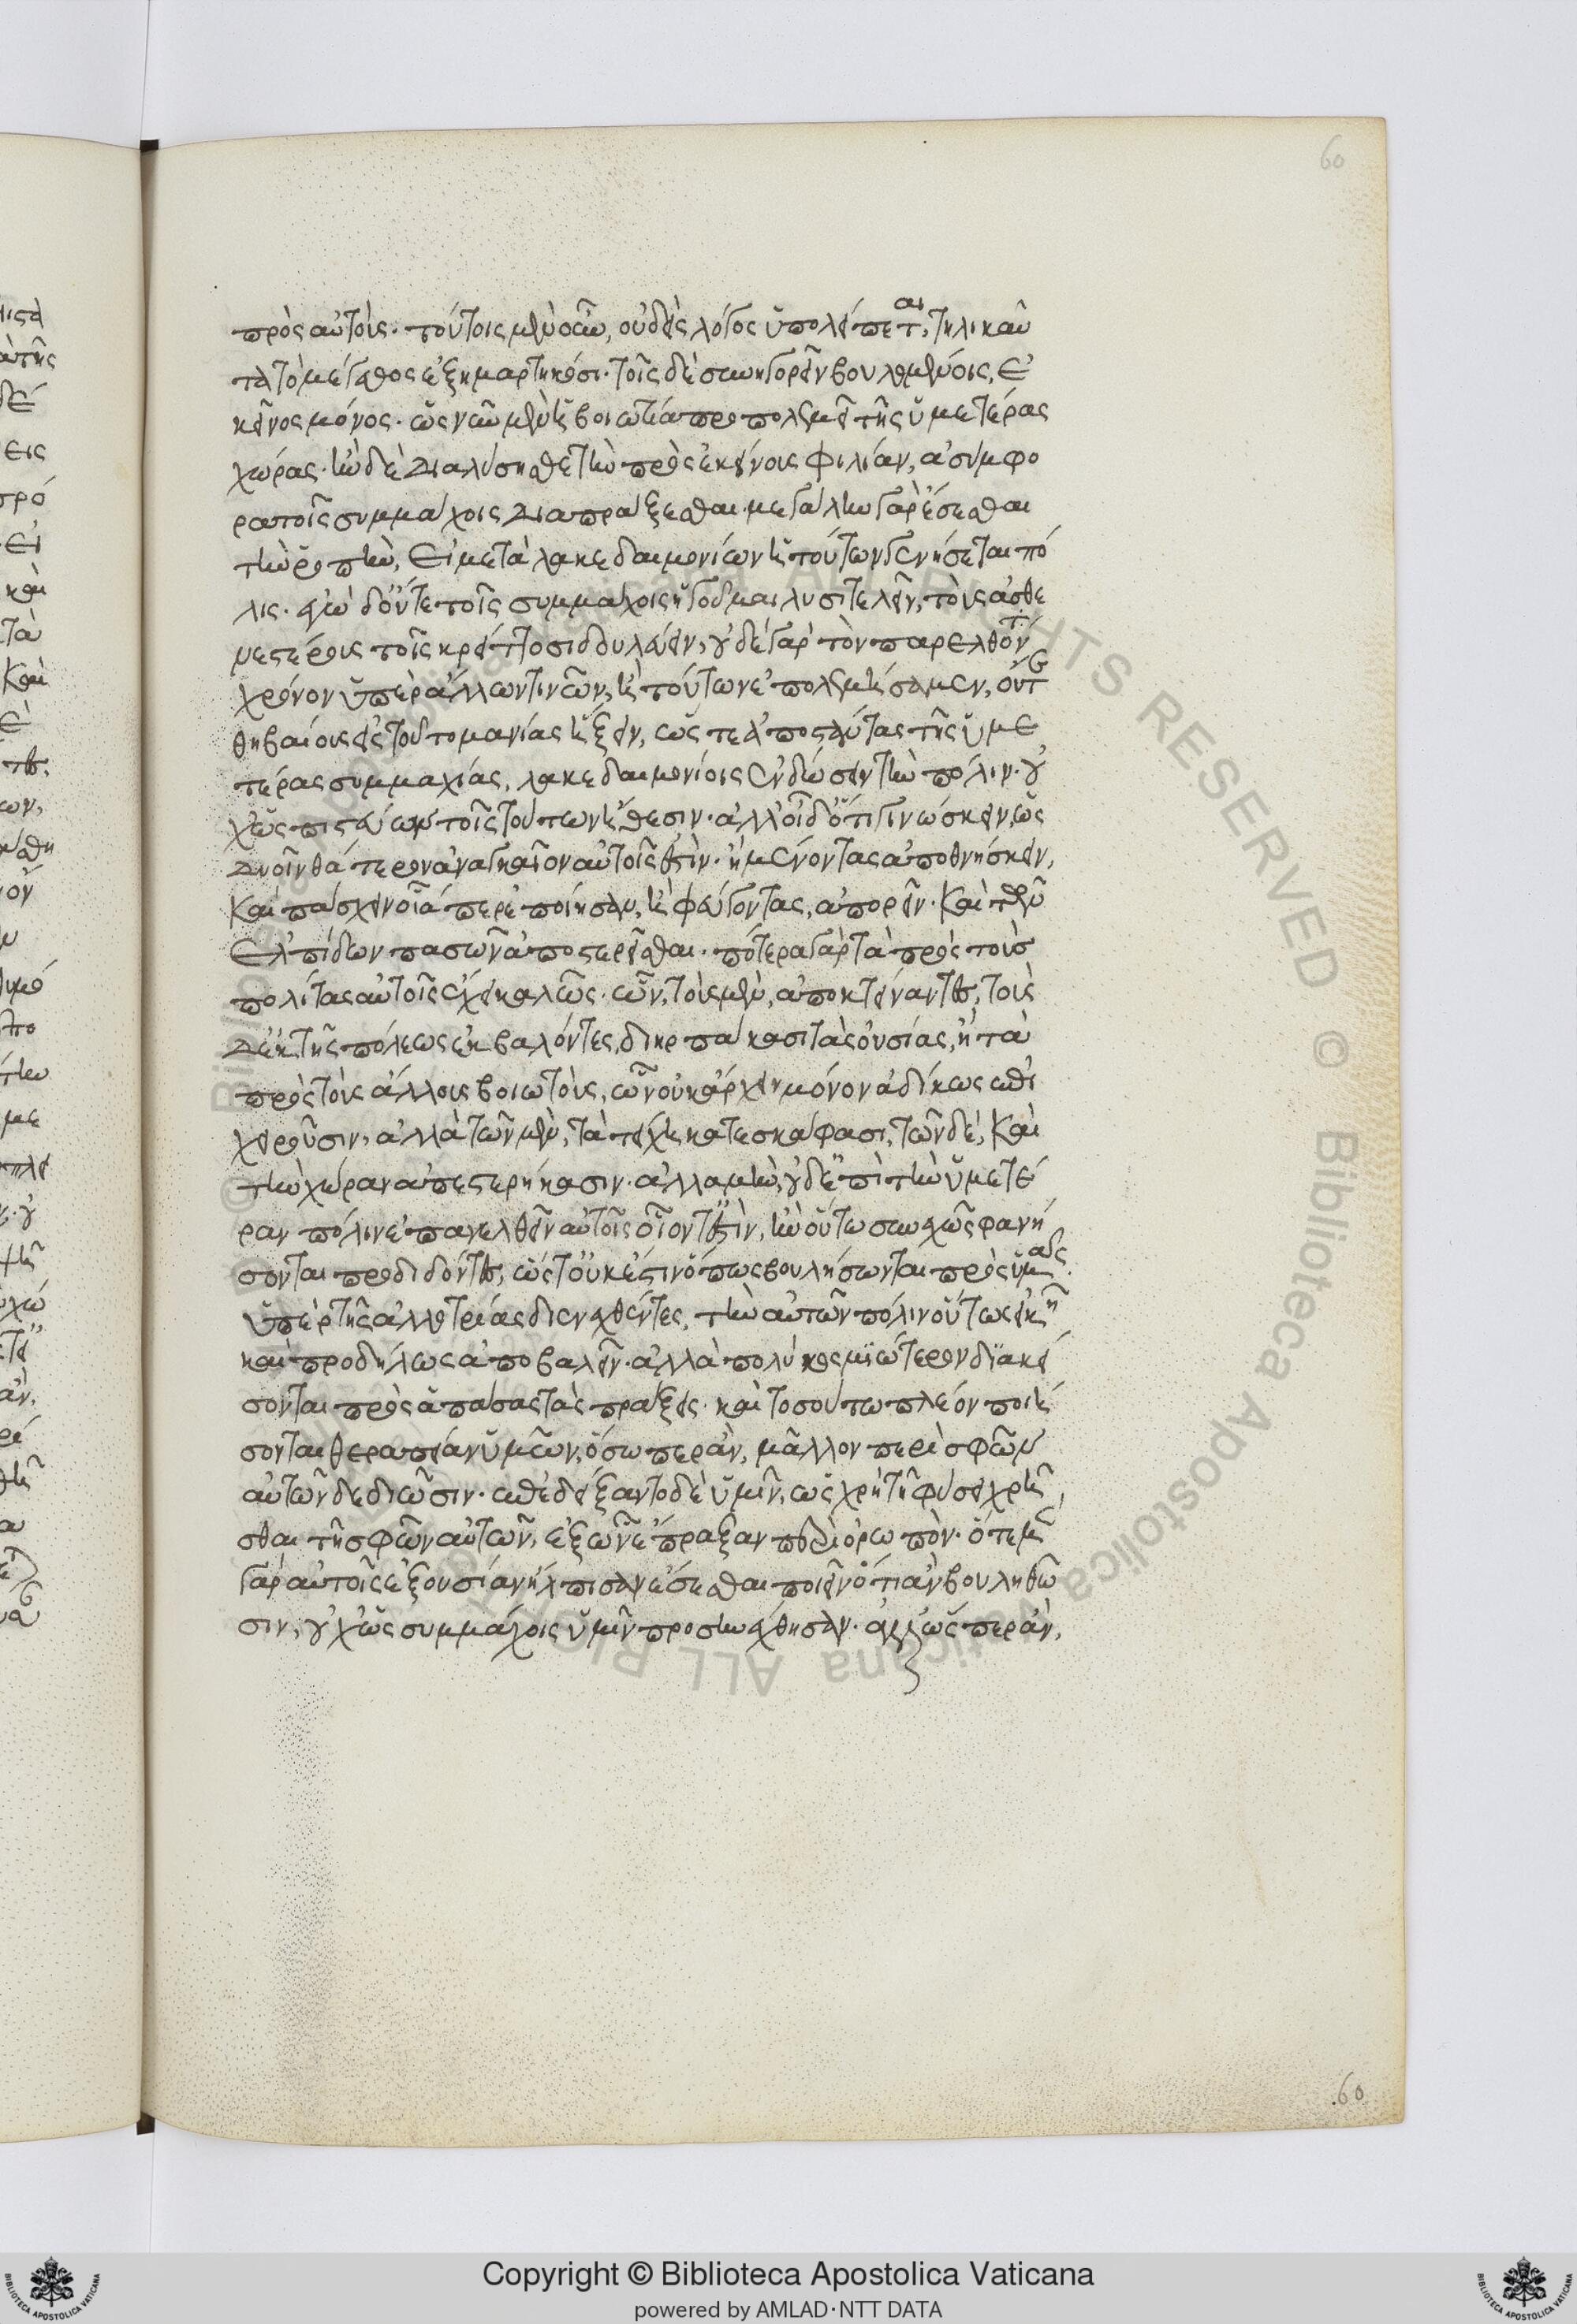 πρὸς αὐτούς. τούτοις μὲν οὖν, οὐδεὶς λόγος ὑπολείπεται, τηλικαῦ
τα τὸ μέγεθος ἐξημαρτηκόσι. τοῖς δὲ συνηγορεῖν βουλομένοις, ἐ
κεῖνος μόνος. ὡς νῦν μὲν ἡ βοιωτία προπολεμεῖ τῆς ὑμετέρας
χώρας. ἢν δὲ διαλύσησθε τὴν πρὸς ἐκείνους φιλίαν, ἀσύμφο
ρα τοῖς συμμάχοις διαπράξεσθαι. μεγάλην γὰρ ἔσεσθαι
τὴν ῥοπὴν, εἰ μετὰ λακεδαιμονίων ἡ τούτων γενήσεται πό
λις. ἐγὼ δ' οὔτε τοῖς συμμάχοις ἡγοῦμαι λυσιτελεῖν, τοὺς ἀσθε
μετέρους τοῖς κρείττοσι δουλεύειν, οὐδὲ γὰρ τὸν παρελθόντ
χρόνον ὑπὲρ ἄλλων τινῶν, ἢ τούτων ἐπολεμήσαμεν, οὔτε
θηβαίους εἰς τοῦτο μανίας ἥξειν, ὥστε ἀποστάντας τῆς ὑμε
τέρας συμμαχίας, λακεδαιμονίοις ἐνδώσειν τὴν πόλιν. οὐ
χ' ὡς πιστεύων τοῖς τούτων ἤθεσιν. ἀλλ' οἶδ' ὅτι γινώσκειν, ὡς
δυοῖν θάτερον ἀναγκαῖον αὐτοῖς ἐστὶν. ἢ μένοντας ἀποθνήσκειν,
καὶ πάσχειν οἷά περ ἐποίησαν, ἢ φεύγοντας, ἀπορεῖν. καὶ τῶν
ἐλπίδων πασῶν ἀποστερεῖσθαι. πότερα γὰρ τὰ πρὸς τοὺς
πολίτας αὐτοῖς ἔχει καλῶς. ὧν, τοὺς μὲν, ἀποκτείναντες, τοὺς
δ' ἐκ τῆς πόλεως ἐκβαλόντες, διηρπάκασι τὰς οὐσίας, ἢ τὰ
πρὸς τοὺς ἄλλους βοιωτοὺς, ὧν οὐκ ἄρχειν μόνον ἀδίκως ἐπι
χειροῦσιν, ἀλλὰ τῶν μὲν, τὰ τείχη κατεσκάφασι, τῶν δὲ, καὶ
τὴν χώραν ἀπεστερήκασιν. ἀλλὰ μὴν, οὐδ' ἐπὶ τὴν ὑμετέ
ραν πόλιν ἐπανελθεῖν αὐτοῖς οἷόντ' ἐστὶν, ἣν οὕτω συνεχῶς φανή
σονται προδιδόντες, ὥστ' οὐκ ἔστιν ὅπως βουλήσωνται πρὸς ὑμᾶς
ὑπὲρ τῆς ἀλλοτρίας διενεχθέντες, τὴν αὑτῶν πόλιν οὕτως εἰκῆ
καὶ προδήλως ἀποβαλεῖν. ἀλλὰ πολὺ κοσμιώτερον διακεί
σονται πρὸς ἁπάσας τὰς πράξεις. καὶ τοσούτω πλεῖον ποιή
σονται θεραπείαν ὑμῶν, ὅσω περ ἂν, μᾶλλον περὶ σφῶν
αὐτῶν δεδιῶσιν. ἐπεδείξαντο δὲ ὑμῖν, ὡς χρὴ τῆ φύσει χρῆ
σθαι τῆ σφῶν αὐτῶν, ἐξ ὧν ἔπραξαν περὶ ὀρωπόν. ὅτε μὲν
γὰρ αὐτοῖς ἐξουσίαν ἤλπισαν ἔσεσθαι ποιεῖν ὅτι ἂν βουληθῶ
σιν, οὐχ' ὡς συμμάχοις ὑμῖν προσηνέχθησαν. ἀλλ' ὥσπερ ἂν,
60
60
Copyright © Biblioteca Apostolica Vaticana
powered by AMLAD·NTT DATA